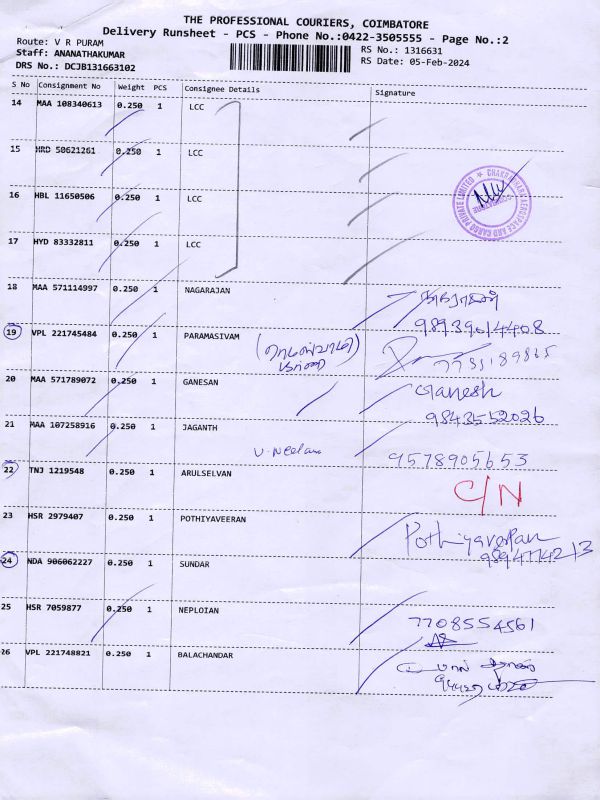 THE PROFESSIONAL COURIERS, COIMBATORE
Delivery Runsheet - PCS - Phone No.:0422-3505555 - Page No.:2
Route: V R PURAM
RS No.: 1316631
Staff: ANANATHAKUMAR
RS Date: 05-Feb-2024
DRS No.: DCJB131663102
S No Consignment No Weight PCS Consignee Details Signature
14 MAA 108340613 0.250 1 LCC
15 HRD 50621261 0.250 1 LCC
16 HBL 11650506 0.250 1 LCC
17 HYD 83332811 0.250 1 LCC
18 MAA 571114997 0.250 1 NAGARAJAN
19 VPL 221745484 0.250 1 PARAMASIVAM
20 MAA 571789072 0.250 1 GANESAN Ganesh
9843552026
21 MAA 107258916 0.250 1 JAGANTH
9578905653
22 TNJ 1219548 0.250 1 ARULSELVAN C/N
23 HSR 2979407 0.250 1 POTHIYAVEERAN
24 NDA 906062227 0.250 1 SUNDAR
25 HSR 7059877 0.250 1 NEPLOIAN 7708554561
26 VPL 221748821 0.250 1 BALACHANDAR